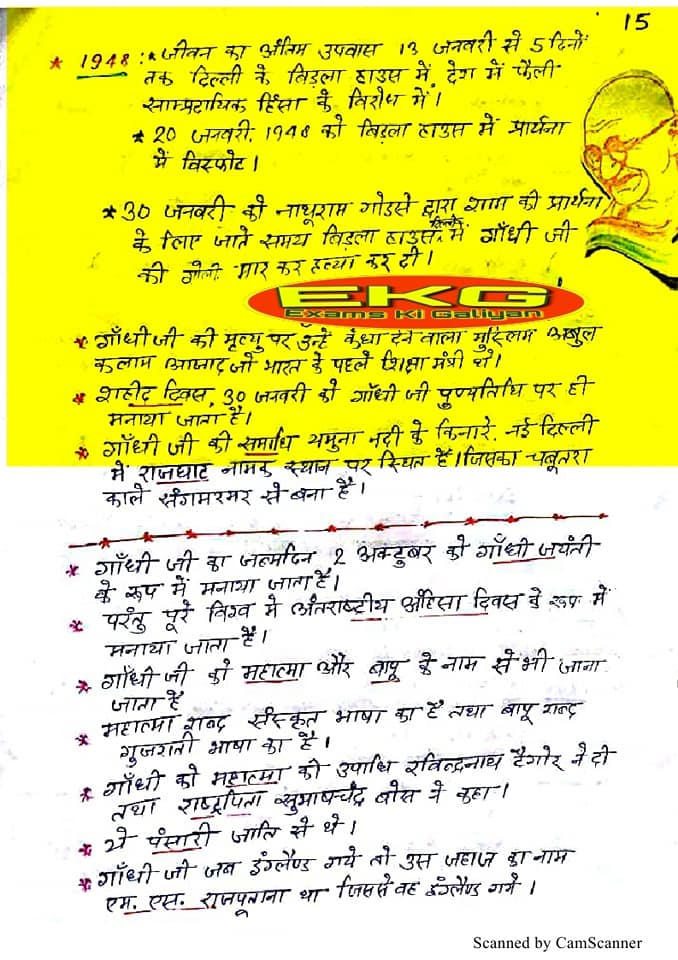 15
* 1948 : * जीवन का अंतिम उपवास 13 जनवरी से 5 दिनों
तक दिल्ली के बिड़ला हाउस में, देश में फैली
साम्प्रदायिक हिंसा के विरोध में।
* 20 जनवरी, 1948 को बिड़ला हाउस में प्रार्थना
में विस्फोट।
* 30 जनवरी को नाथूराम गोडसे द्वारा शाम की प्रार्थना
के लिए जाते समय बिड़ला हाउस, दिल्ली में गाँधी जी
की गोली मार कर हत्या कर दी।
EKG
Exams Ki Galiyan
* गाँधी जी की मृत्यु पर उन्हें कंधा देने वाला मुस्लिम अबुल
कलाम आजाद जो भारत के पहले शिक्षा मंत्री थे।
* शहीद दिवस, 30 जनवरी को गाँधी जी पुण्यतिथि पर ही
मनाया जाता है।
* गाँधी जी की समाधि यमुना नदी के किनारे, नई दिल्ली
में राजघाट नामक स्थान पर स्थित है। जिसका चबूतरा
काले संगमरमर से बना है।
* गाँधी जी का जन्मदिन 2 अक्टुबर को गाँधी जयंती
के रूप में मनाया जाता है।
* परंतु पूरे विश्व मे अंतराष्ट्रीय अहिंसा दिवस के रूप में
मनाया जाता है।
* गाँधी जी को महात्मा और बापू के नाम से भी जाना
जाता है
* महात्मा शब्द संस्कृत भाषा का है तथा बापू शब्द
गुजराती भाषा का है।
* गाँधी को महात्मा की उपाधि रविन्द्रनाथ टैगोर ने दी
तथा राष्ट्रपिता सुभाषचंद्र बोस ने कहा।
* ये पंसारी जाति से थे।
* गाँधी जी जब इंग्लैण्ड गये तो उस जहाज का नाम
एम. एस. राजपूताना था जिससे वह इंग्लैण्ड गये।
Scanned by CamScanner